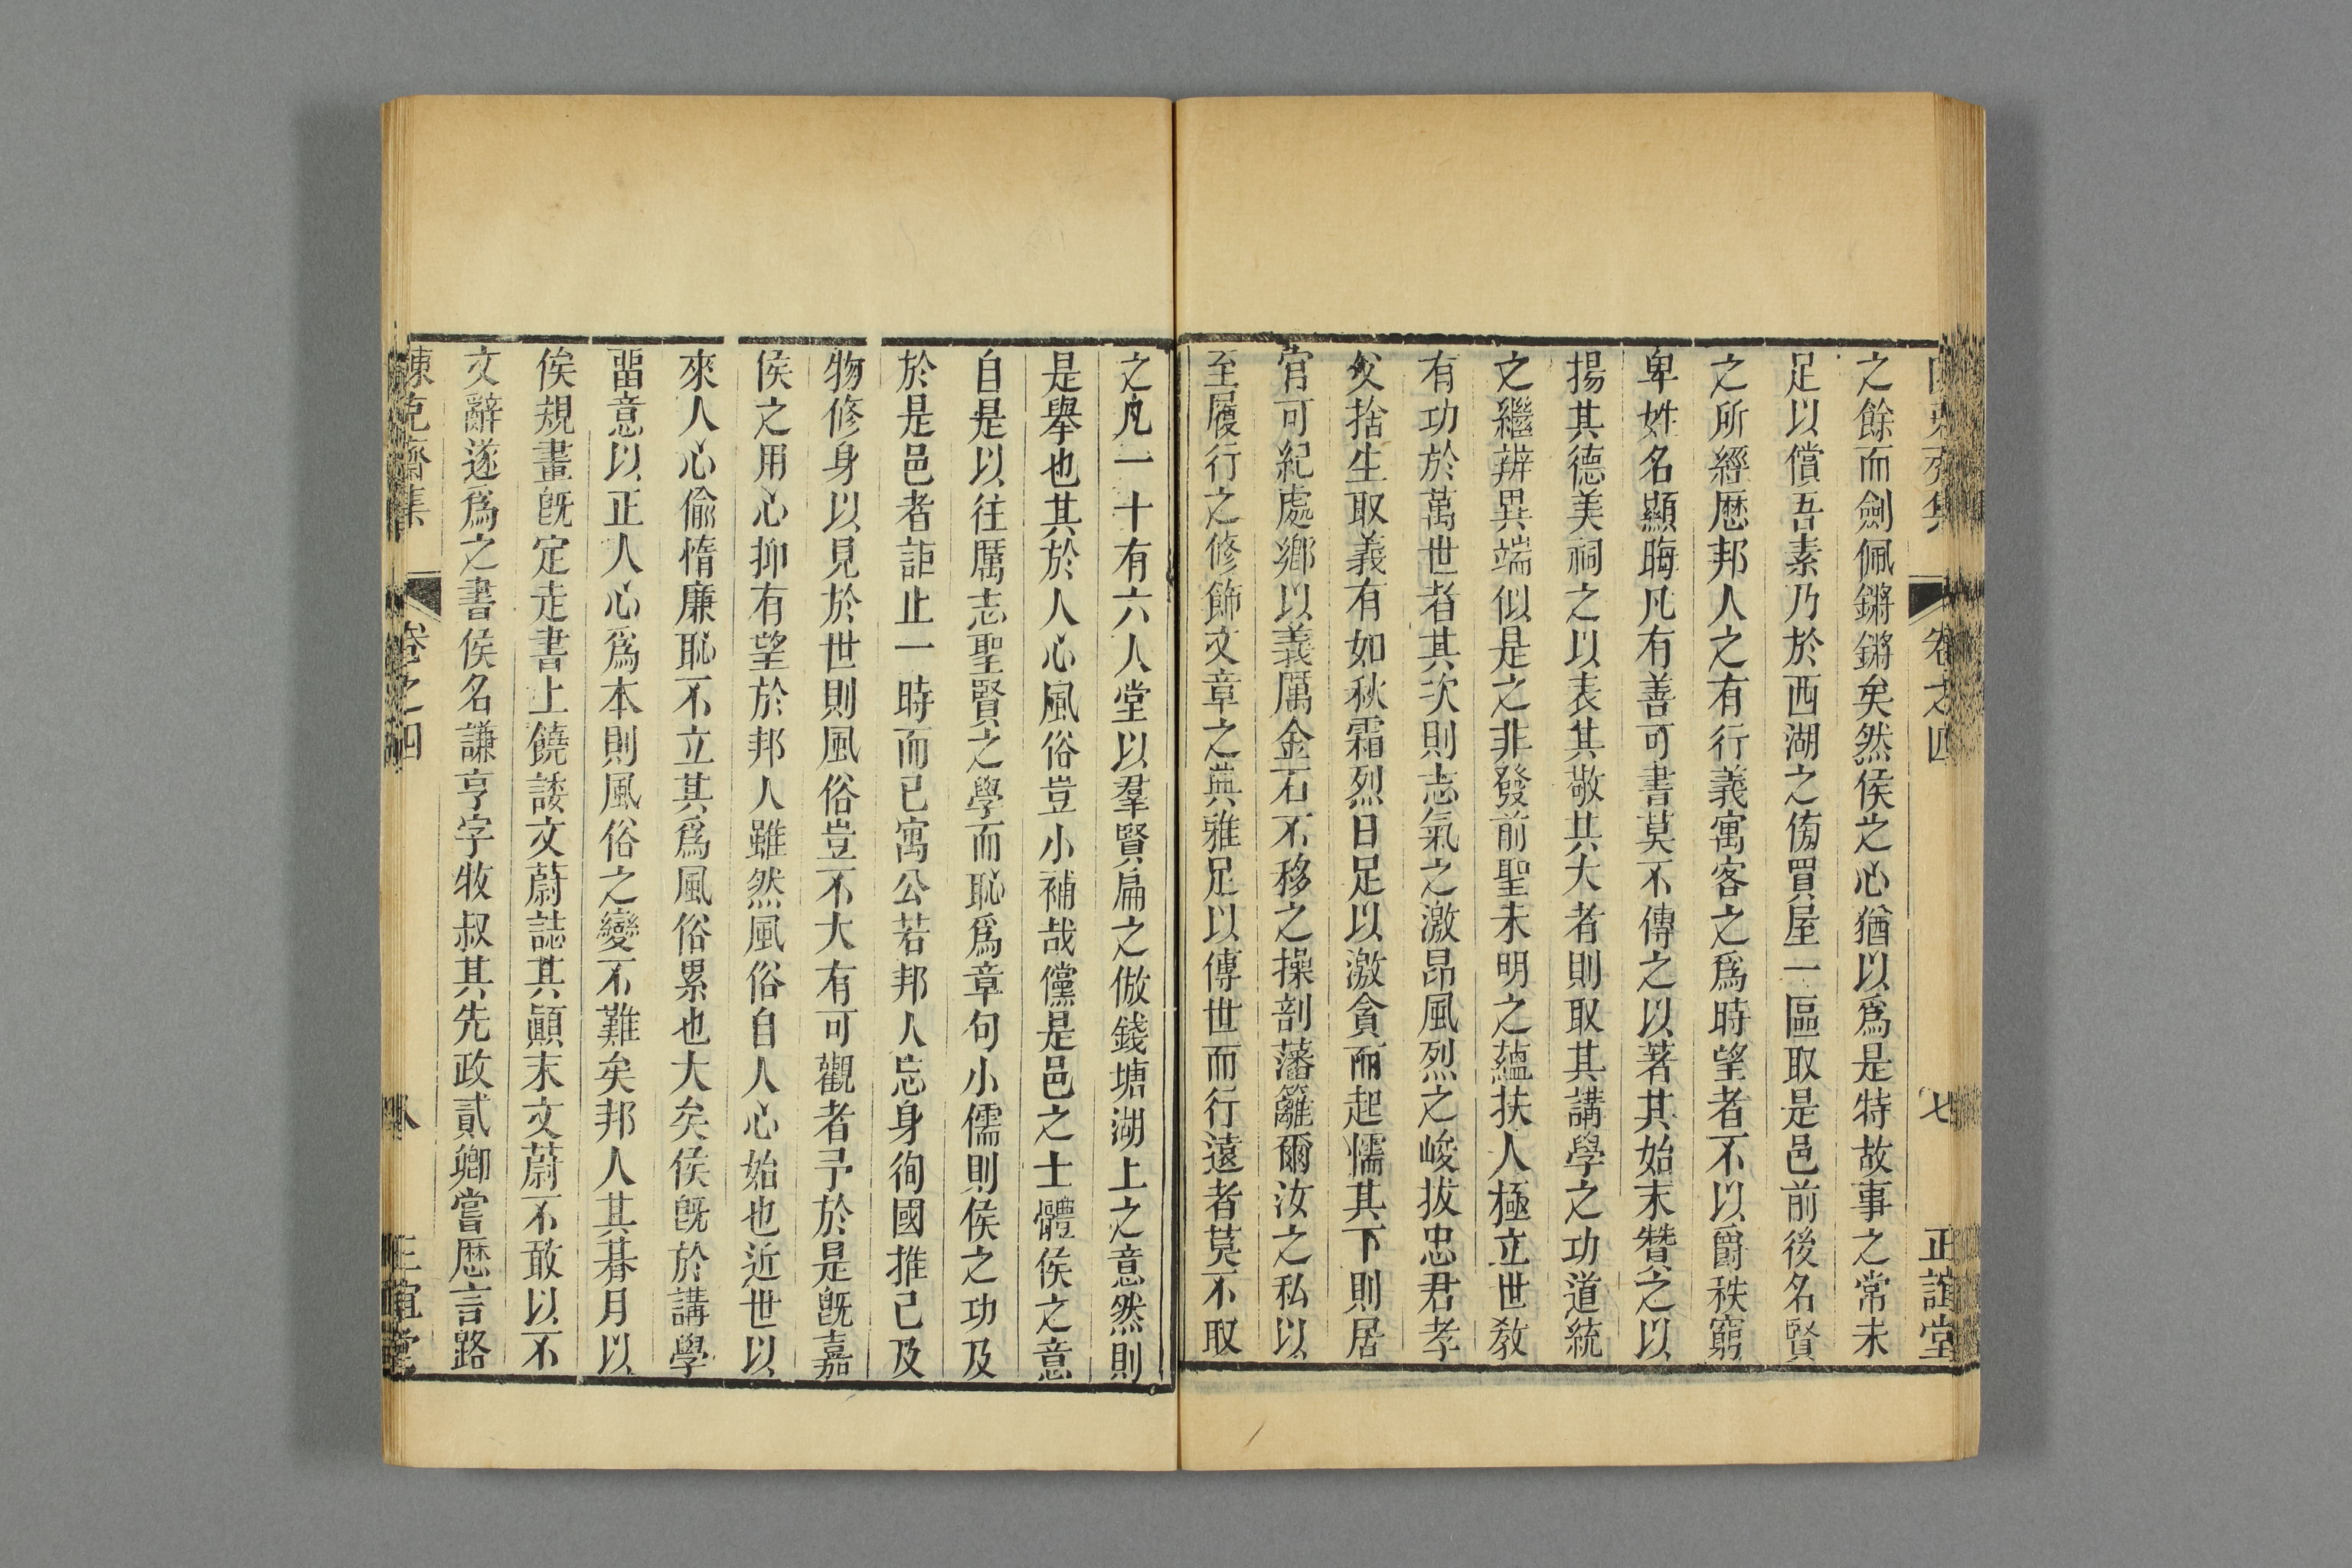 卷之四 七 正誼堂
之餘而劍佩鏘鏘矣然侯之心猶以爲是特故事之常未
足以償吾素乃於西湖之傍買屋一區取是邑前後名賢
之所經歷邦人之有行義寓客之爲時望者不以爵秩窮
卑姓名顯晦凡有善可書莫不傳之以著其始末贊之以
揚其德美祠之以表其敬其大者則取其講學之功道統
之繼辨異端似是之非發前聖未明之蘊扶人極立世教
有功於萬世者其次則志氣之激昂風烈之峻拔忠君孝
父捨生取義有如秋霜烈日足以激貪而起懦其下則居
官可紀處鄉以義厲金石不移之操剖藩籬爾汝之私以
至履行之修飾文章之典雅足以傳世而行遠者莫不取
之凡一十有六人堂以羣賢扁之倣錢塘湖上之意然則
是舉也其於人心風俗豈小補哉儻是邑之士體侯之意
自是以往厲志聖賢之學而恥爲章句小儒則侯之功及
於是邑者詎止一時而已寓公若邦人忘身徇國推己及
物修身以見於世則風俗豈不大有可觀者予於是旣嘉
侯之用心抑有望於邦人雖然風俗自人心始也近世以
來人心偷惰廉恥不立其爲風俗累也大矣侯旣於講學
畱意以正人心爲本則風俗之變不難矣邦人其朞月以
俟規畫旣定走書上饒諉文蔚誌其顚末文蔚不敢以不
文辭遂爲之書侯名謙亨字牧叔其先政貳卿嘗歷言路
陳克齋集 卷之四 八 正誼堂